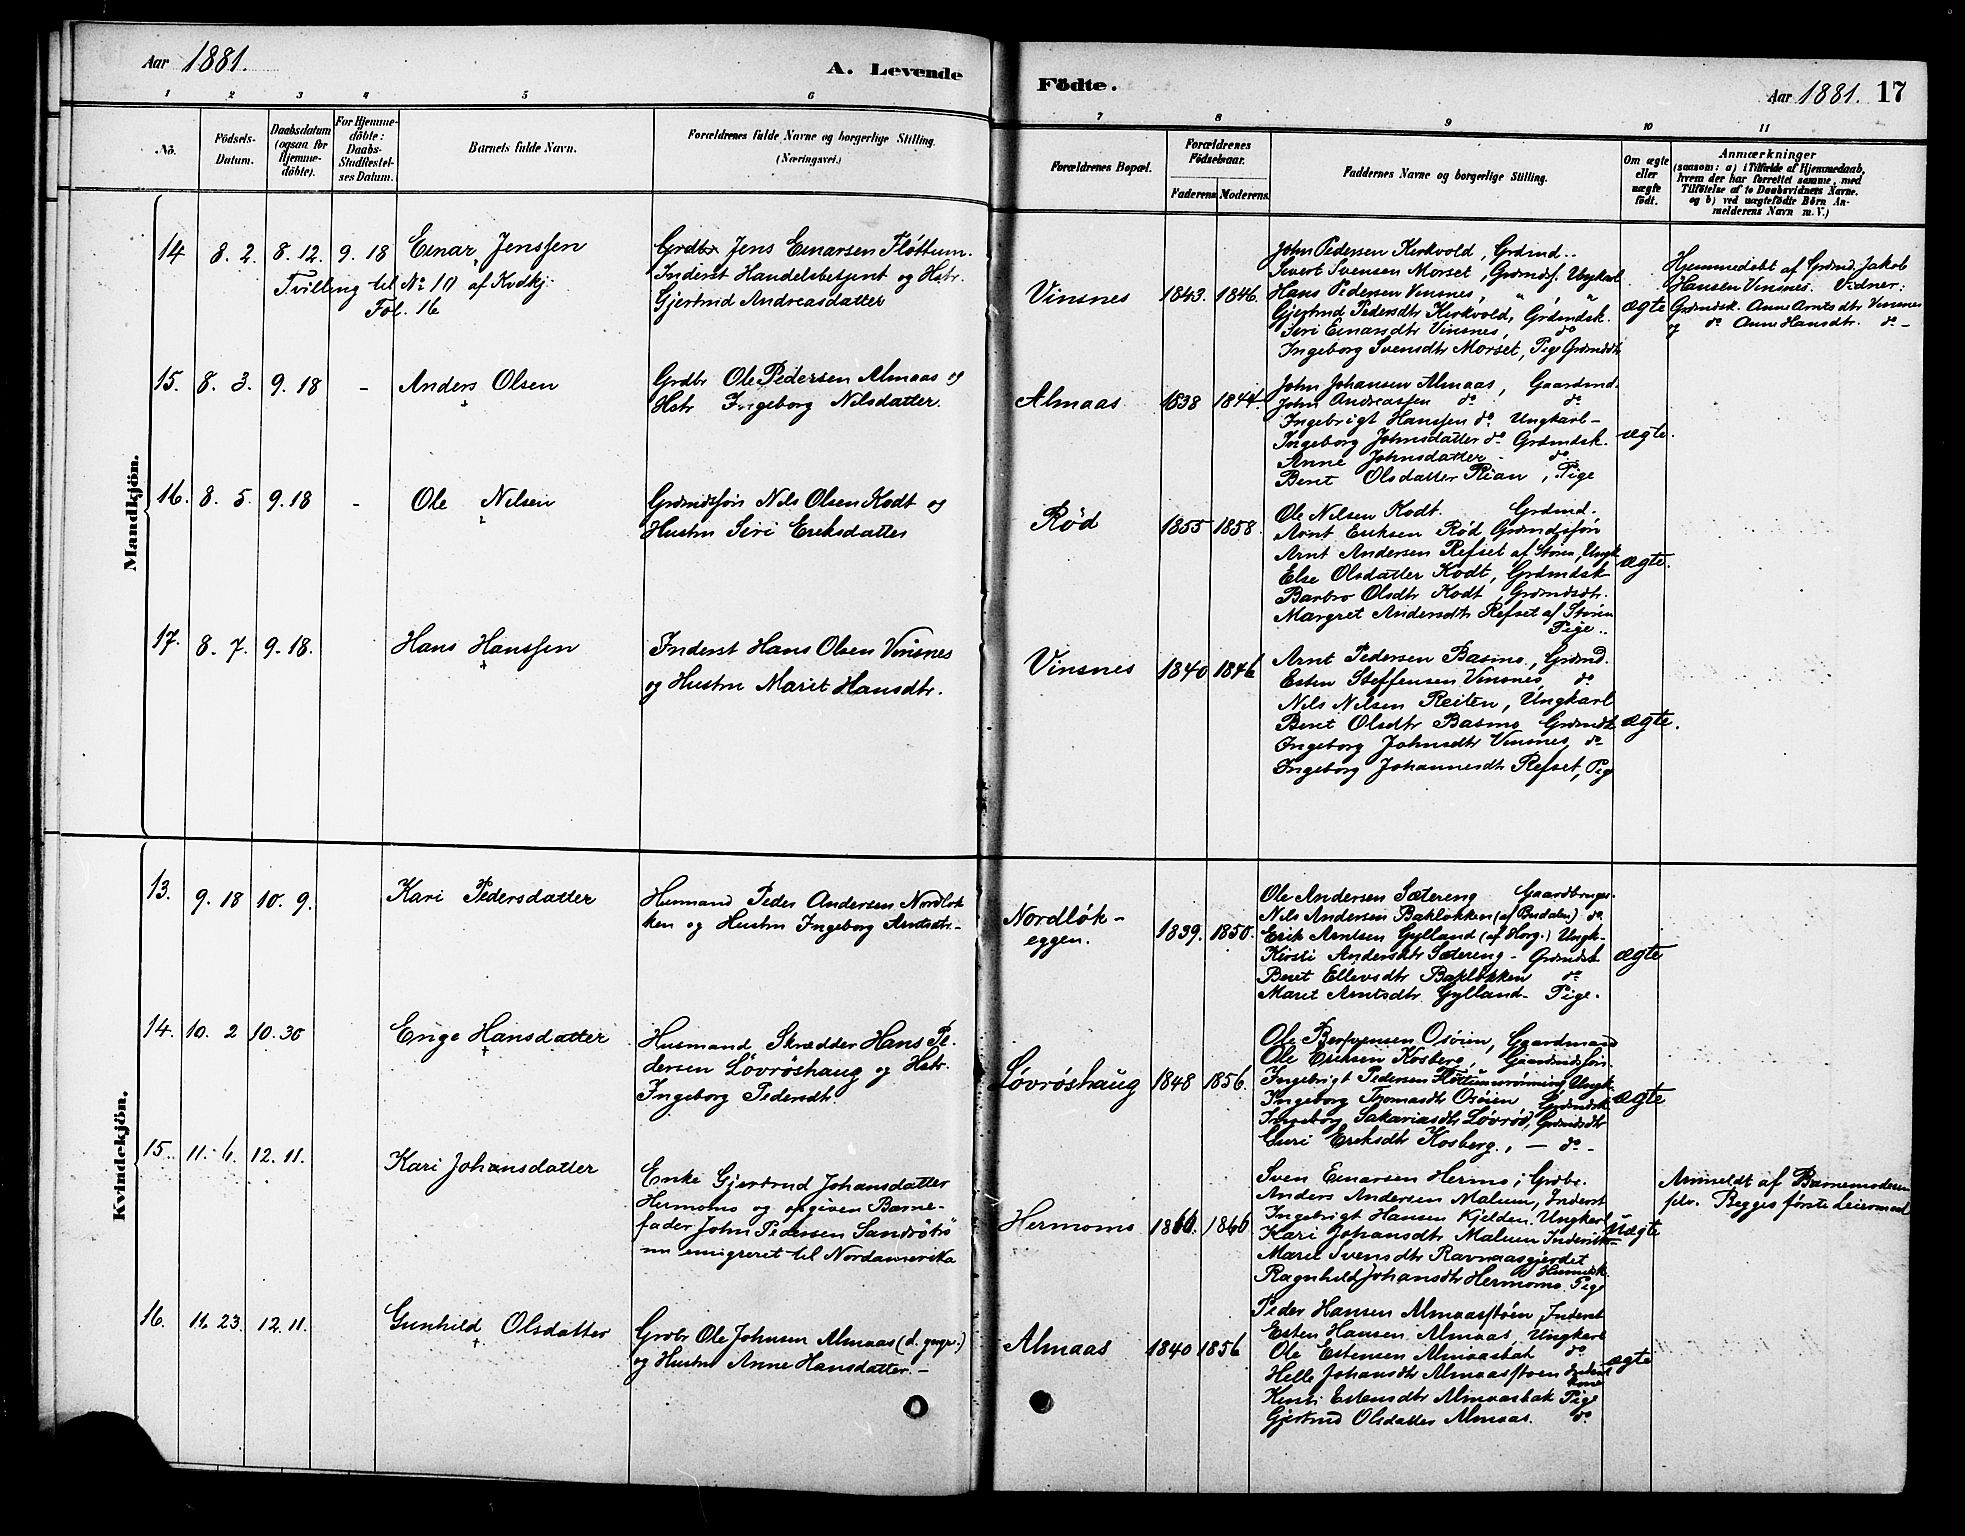 Aar 1881.
A. Levende
Födte.
Aar 1881. 17
1 2 3 4 5 6 7 8 9 10 11
No.
Födsels-
Datum.
Daabsdatum
(ogsaa for
Hjemme-
döbte).
For Hjemme-
döbte:
Daabs-
Stadfæstel-
ses Datum.
Barnets fulde Navn.
Forældrenes fulde Navne og borgerlige Stilling.
(Næringsvei.)
Forældrenes Bopæl.
Forældrenes
Födselsaar.
Faderens. Moderens.
Faddernes Navne og borgerlige Stilling.
Om ægte
eller
uægte
født.
Anmærkninger
(saasom: a) i Tilfælde af Hjemmedaab,
hvem der har forrettet samme, med
Tilföielse af to Daabsvidners Navne.
og b) ved uægtefödte Börn An-
melderens Navn m. V.)
Mandkjön.
14 8. 2. 8. 12. 9. 18 Einar Jenssen
Tvilling til No 10 af Kvdkj.
Fol. 16
Grdbr Jens Einarsen Fløttum.
Inderst Handelsbetjent og Hstr.
Gjertrud Andreasdatter
Vinsnes 1843. 1846.
John Pedersen Kirkvold, Grdmd..
Sivert Svensen Morset, Grdmdss. Ungkarl
Hans Pedersen Vinsnes, " , "
Gjertrud Pedersdtr Kirkvold, Grdmdsk.
Siri Einarsdtr Vinsnes, do
Ingeborg Svensdtr Morset, Pige Grdmdsdtr
ægte
Hjemmedøbt af Grdmd. Jakob
Hansen Vinsnes. Vidner:
Grdmdsk. Anne Arntsdtr Vinsnes
og do Anne Hansdtr. do -
15. 8. 3. 9. 18 - Anders Olsen
Grdbr Ole Pedersen Almaas og
Hstr Ingeborg Nilsdatter.
Almaas 1838 1844.
John Johansen Almaas, Gaardmd.
John Andreassen do do
Ingebrigt Hanssen do Ungkarl-
Ingeborg Johnsdatter do Grdmdsk.
Anne Johnsdatter - do
Berit Olsdatter Rian, Pige
ægte.
16. 8. 5. 9. 18 - Ole Nilsen
Grdmdssøn Nils Olsen Kodt og
Hustru Siri Eriksdatter
Rød 1855 1858.
Ole Nilsen Kodt. Grdmd.
Arnt Eriksen Rød Grdmdssøn
Arnt Andersen Refset af Støren, Ungk.
Else Olsdatter Kodt, Grdmdsk
Barbro Olsdtr Kodt, Grdmdsdtr.
Margret Andersdtr Refset af Støren
Pige..
ægte.
17. 8. 7. 9. 18. Hans Hanssen
Inderst Hans Olsen Vinsnes
og Hustru Marit Hansdtr.
Vinsnes 1840 1846
Arnt Pedersen Basmo, Grdmd.
Esten Steffensen Vinsnes do
Nils Nilsen Reiten, Ungkarl
Berit Olsdtr Basmo Grdmdsk
Ingeborg Johnsdtr Vinsnes, do
Ingeborg Johannesdtr Refset, Pig
ægte.
Kvindekjön.
13. 9. 18 10. 9. Kari Pedersdatter
Husmand Peder Andersen Nordløk
ken og Hustru Ingeborg Arntsdtr.-
Nordløk-
eggen. 1839. 1850.
Ole Andersen Sætereng Gaardbruger.
Nils Andersen Bakløkken (af Budalen) do.
Erik Arntsen Gylland (af Horg.) Ungk-
Kirsti Andersdtr Sætereng - Grdmdsk
Beret Ellevsdtr Bakløkken do
Marit Arntsdtr Gylland - Pige.
ægte
14. 10. 2 10. 30 Enge Hansdatter
Husmand Skrædder Hans Pe-
dersen Løvrøshaug og Hstr.
Ingeborg Pedersdtr
Løvrøshaug 1848 1856.
Ole Osøien, Gaardmand
Ole Eriksen Kosberg, Gaardmdssøn
Ingebrigt Pedersen Fløttumsrønning, Ungk.
Ingeborg Thomasdtr Osøien Grdmdsk
Ingeborg Sakariasdtr Løvrød, Grdmdsdtr
Guri Eriksdtr Kosberg, - do -
ægte
15. 11. 6. 12. 11. Kari Johansdatter
Enke Gjertrud Johansdatter
Hermoms og opgiven Barne-
fader John Pedersen Sandrøtrø
nu emigreret til Nordamerika
Hermoms 1860. 1846
Sven Einarsen Hermo, Grdbr.
Anders Andersen Malum, Inderst
Ingebrigt Hansen Kjelden. Ungkarl
Kari Johansdtr Malum Inderstk.
Marit Svensdtr Ravnaasgjerdet
Husmdsk.
Ragnhild Johansdtr Hermoms, Pige
Uægte
Anmeldt af Barnemoderen
selv. Begges første Leiermaal
16. 11. 23. 12. 11. Gunhild Olsdatter
Grdbr Ole Johnsen Almaas (d. yngr.)
og Hustru Anne Hansdatter. -
Almaas 1840 1856
Peder Hansen Almaasstøen, Inderst
Esten Hansen Almaas, Ungkarl
Ole Estensen Almaasbak do
Helle Johansdtr Almaasstøen Inderst
kone
Kirsti Estensdtr Almaasbak Pige
Gjertrud Olsdatter Almaas. do
ægte